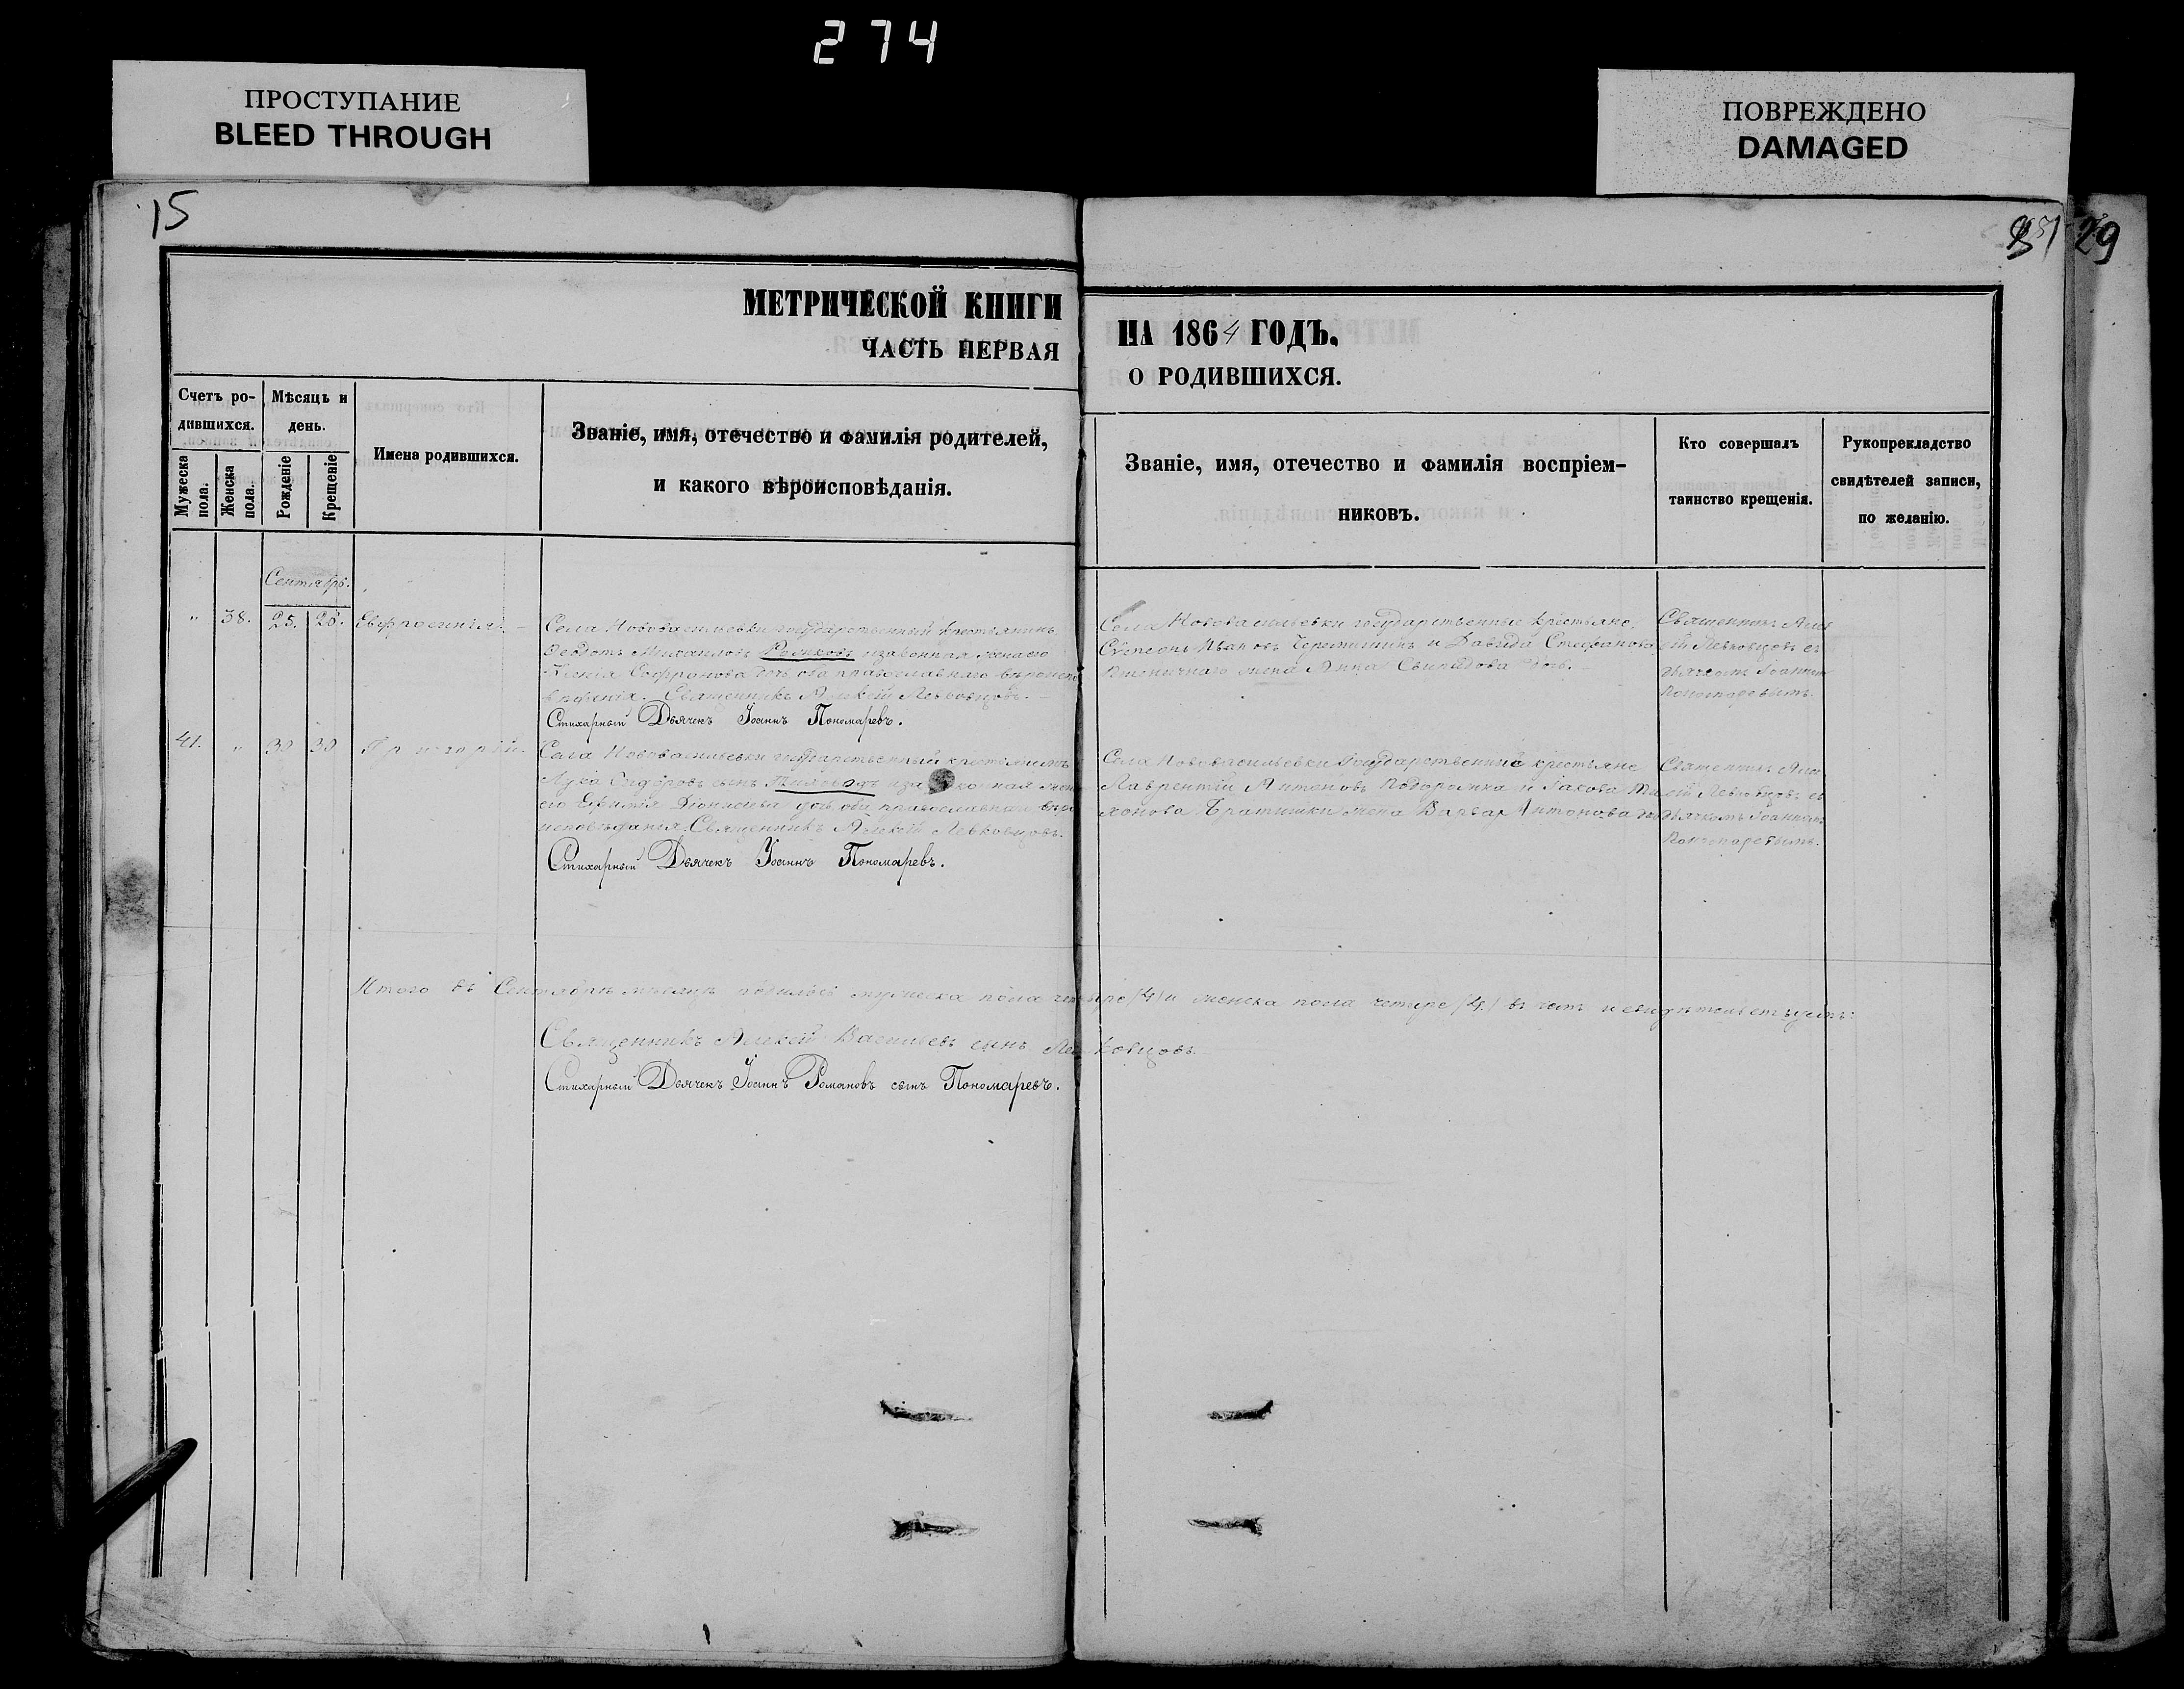 274
ПРОСТУПАНИЕ
BLEED THROUGH
ПОВРЕЖДЕНО
DAMAGED
15
29
МЕТРИЧЕСКОЙ КНИГИ
ЧАСТЬ ПЕРВАЯ
НА 1864 ГОДЪ.
О РОДИВШИХСЯ.
Счетъ ро-
дившихся.
Мужеска
пола.
Женска
пола.
Мѣсяцъ и
день.
Рожденіе
Крещеніе
Имена родившихся.
Званіе, имя, отечество и фамилія родителей,
и какого вѣроисповѣданія.
Званіе, имя, отечество и фамилія воспріем-
никовъ.
Кто совершалъ
таинство крещенія.
Рукоприкладство
свидѣтелей записи,
по желанію.
Сентябрь.
" 38. 25. 28. Евфросинія.
Села Нововасильевки государственный крестьянинъ
Ѳедотъ Михаиловъ и законная жена его
Ксенія Софронова оба православнаго вѣроиспо
вѣданія. Священникъ Алексѣй Левковцовъ.
Стихарный Дьячекъ Іоаннъ Пономаревъ.
Села Нововасильевки государственные крестьяне
Симеонъ Ивановъ и Давида Стефанова
Пшеничнаго жена Анна Свиридова дочь.
Священникъ Алек
сѣй Левковцовъ съ
дьячкомъ Іоанномъ
Пономаревымъ.
41. " 30 30 Григорій.
Села Нововасильевки государственный крестьянинъ
Лука сынъ и законная жена
его Евфимія Діонисіева дочь оба православнаго вѣро
исповѣданія. Священникъ Алексѣй Левковцовъ.
Стихарный Дьячекъ Іоаннъ Пономаревъ.
Села Нововасильевки государственный крестьяне
Лаврентій Антоновъ и Іакова Ти
хонова Братишки жена Варвара Антонова дочь
Священникъ Але
ксѣй Левковцовъ съ
дьячкомъ Іоанномъ
Пономаревымъ.
Итого въ Сентябрѣ мѣсяцѣ родилось мужеска пола четыре (4) и женска пола четыре (4) въ чемъ и свидѣтельствуемъ:
Священникъ Алексѣй Васильевъ сынъ Левковцовъ.
Стихарный Дьячекъ Іоаннъ Романовъ сынъ Пономаревъ.